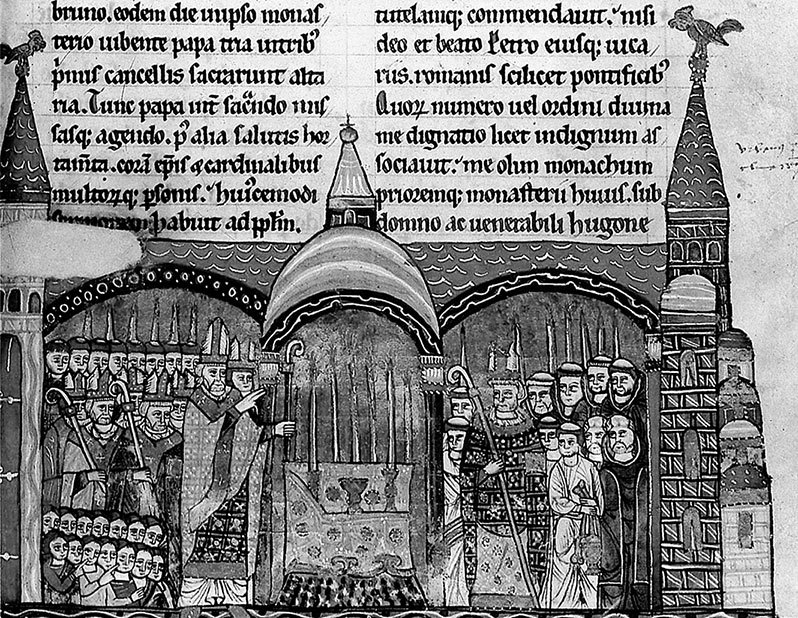 bruno. eodem die in ipso monas
terio iubente papa tria in trib᷒
p̄mis cancellis sacrarunt alta
ria. Tunc papa int̄ sac̄ndo mis
sasq; agendo. p᷒ alia salutis hor
tam̄ta. corā ep̄is ⁊ cardinalibus
multorq; p̄sonis. huiscemodi
habuit ad pp̄lm.
tutelamq; commendauit. nisi
deo et beato Petro eiusq; uica
riis. romanis scilicet pontificib᷒
Quoꝝ numero uel ordini diuina
me dignatio licet indignum as
sociauit. me olim monachum
prioremq; monasterii huius. sub
domno ac uenerabili hugone